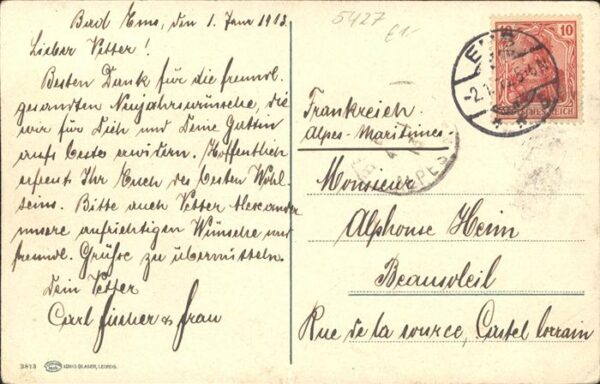 Bad Ems, den 1. Janr 1913.
Lieber Vetter!
Besten Dank für die freundl.
gesandten Neujahrswünsche, die
wir für Dich und Deine Gattin
aufs beste erwidern. Hoffentlich
erfreut Ihr Euch des besten Wohl-
seins. Bitte auch Vetter Alexander
unsere aufrichtigen Wünsche und
freundl. Grüße zu übermitteln.
Dein Vetter
Carl Fischer & Frau
3813 LOUIS GLASER, LEIPZIG.
5427
10 10
EMS
DEUTSCHES REICH
Frankreich.
Alpes-Maritimes.
ALPES
Monsieur
Alphonse Heim
Beausoleil
Rue de la source, Castel lorrain